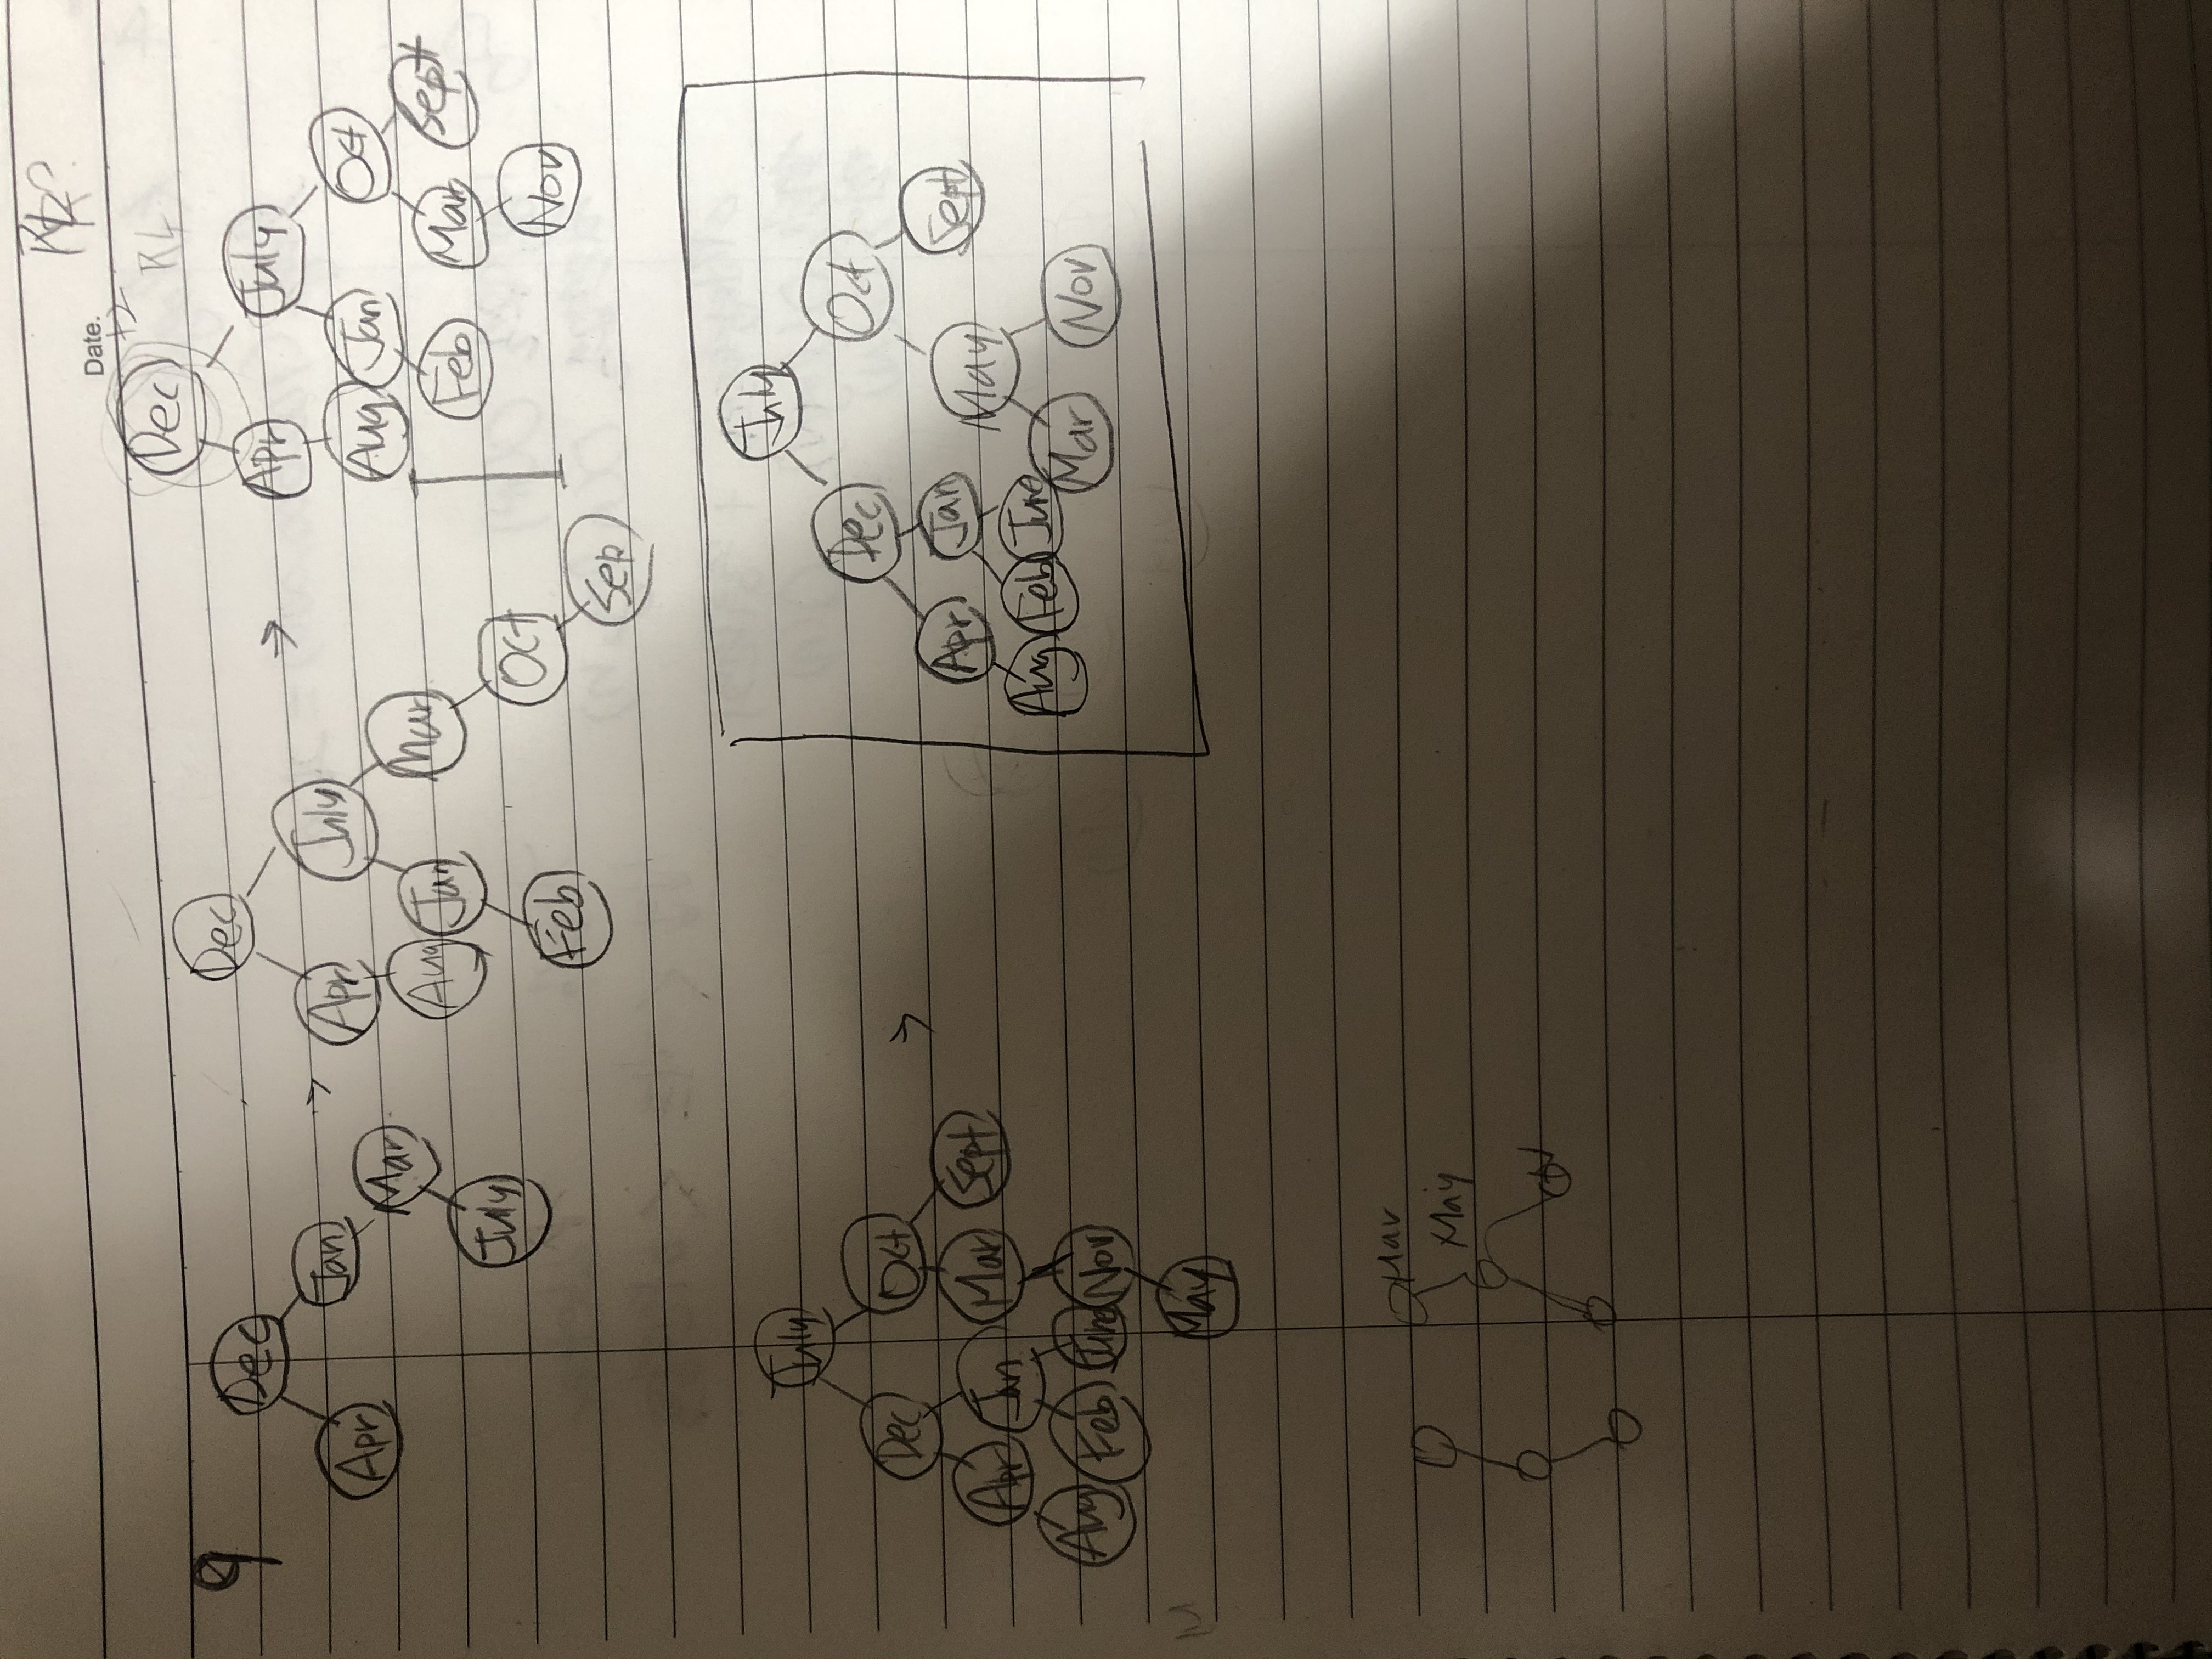 Date.
9
Dec
Apr
Jan
Mar
July
Dec
Apr
July
Aug
Jan
Mar
Feb
Oct
Sep
Dec +2
RL
Apr
July
Aug
Jan
Oct
Feb
Mar
Sept
Nov
July
Dec
Oct
Apr
Jan
Mar
Sept
Aug
Feb
June
Nov
May
July
Dec
Oct
Apr
Jan
May
Sept
Aug
Feb
June
Mar
Nov
M
Mar
May
N